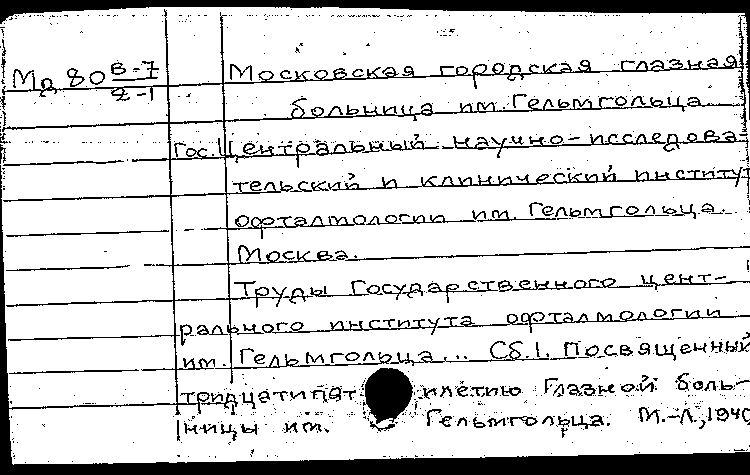 Мд 80 В-7 Московская городская глазная
2-1
больница им. Гельмгольца
Гос. Центральный научно-исследова-
тельский и клинический институт
офталмологии им. Гельмгольца.
Москва.
Труды Государственного цент-
рального института офталмологии
им. Гельмгольца... Сб. 1. Посвященный
тридцатипят илетию Глазной боль-
ницы им. Гельмгольца. М.-Л., 1940